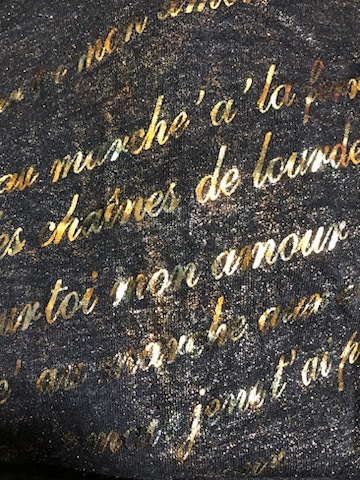 mon amour
au marche' a' la fer
es chaînes de lourde
ur toi mon amour
e' au marche aux
mour jenu t'ai p